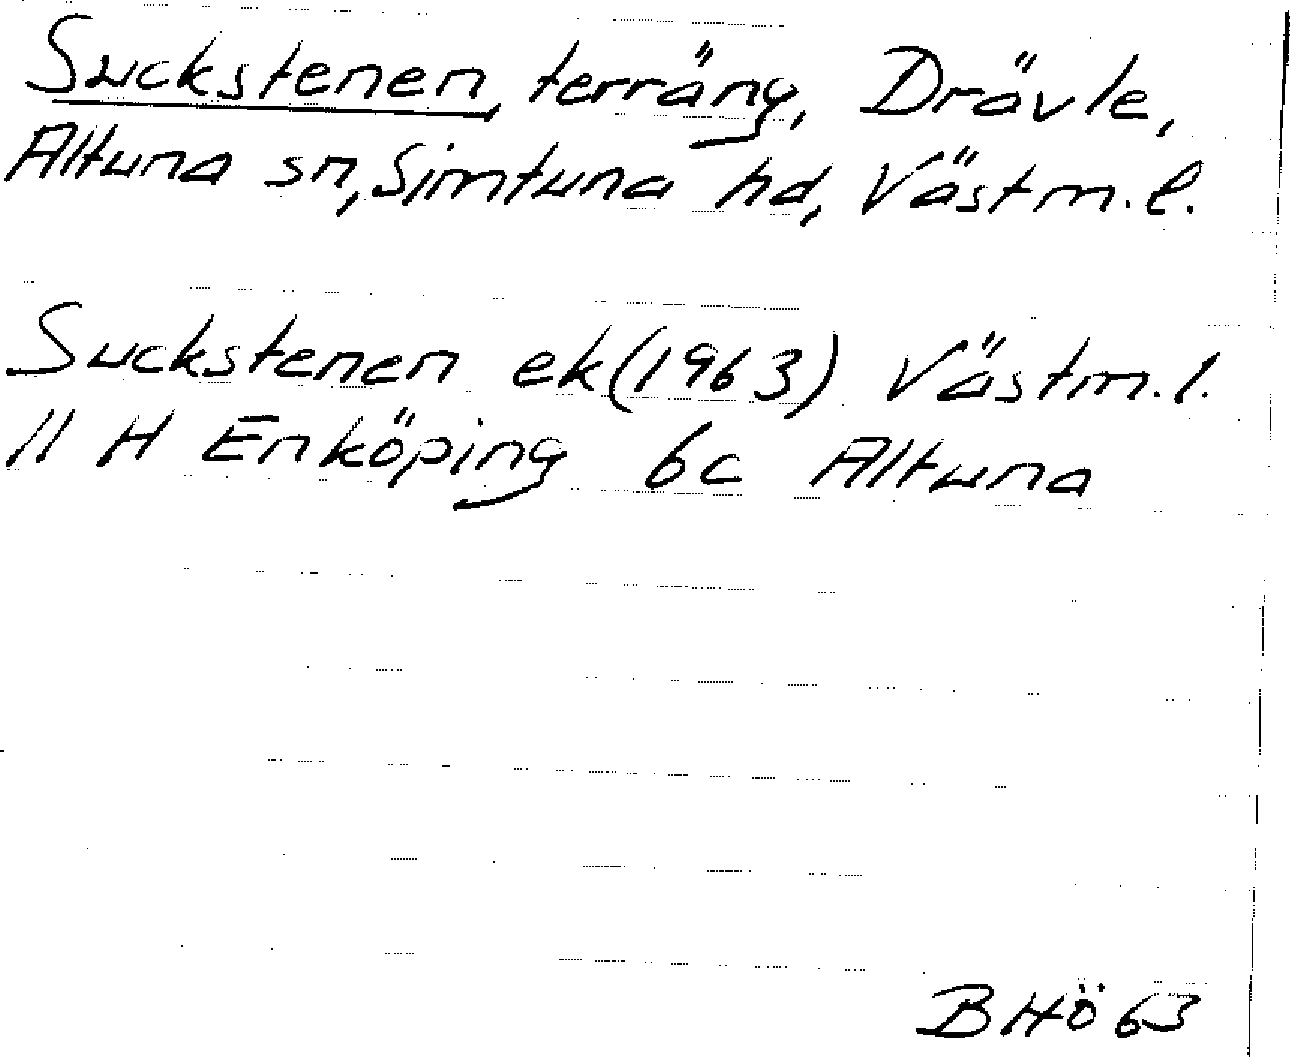 Suckstenen, terräng, Drävle,
Altuna sn, Simtuna hd, Västm.l.
Suckstenen ek (1963) Västm.l.
11 H Enköping 6c Altuna
BHö 63